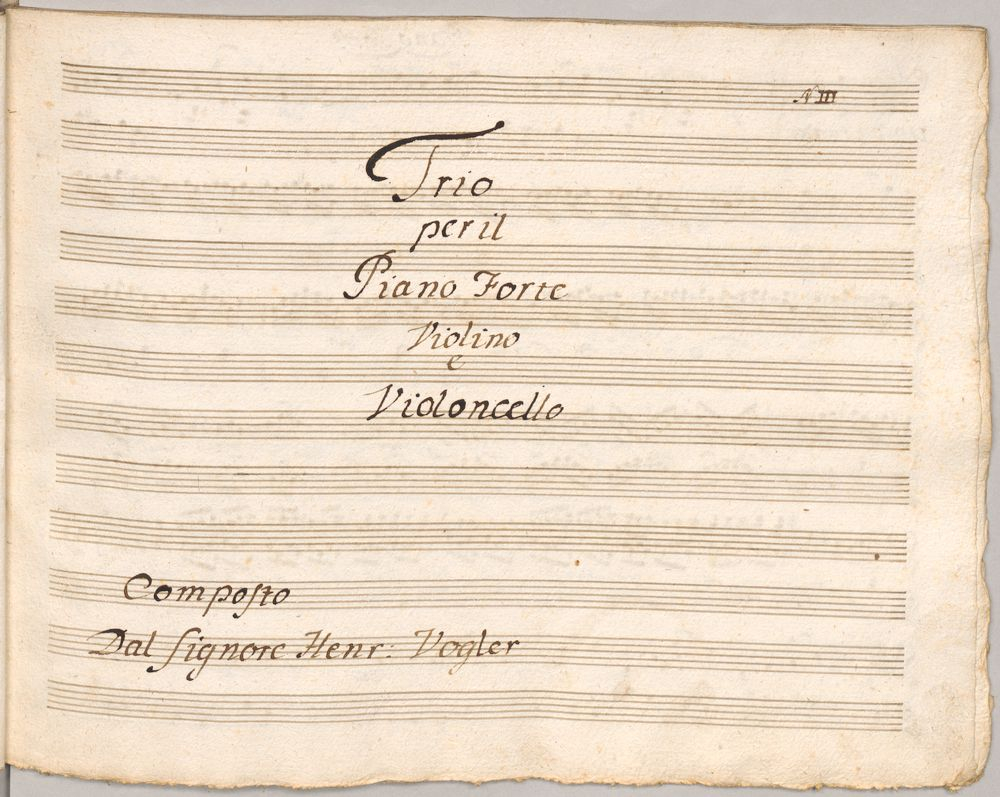 N III
Trio
per il
Piano Forte
Violino
e
Violoncello
Compoſto
Dal ſignore Henr: Vogler